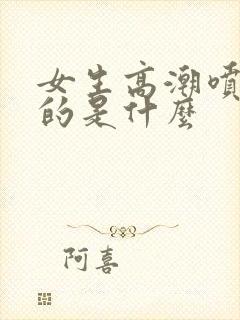 女生高潮噴
的是什麼
阿喜